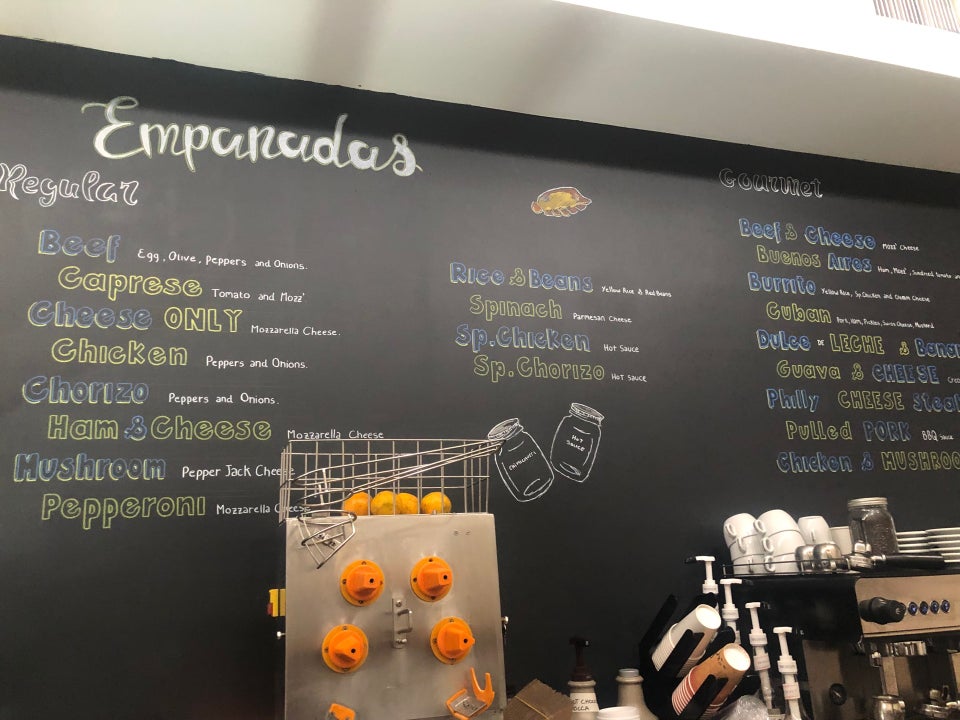 Empanadas
Regular
Beef Egg, Olive, Peppers and Onions.
Caprese Tomato and Mozz'
Cheese ONLY Mozzarella Cheese.
Chicken Peppers and Onions.
Chorizo Peppers and Onions.
Ham & Cheese Mozzarella Cheese
Mushroom Pepper Jack Cheese
Pepperoni Mozzarella Cheese
Rice & Beans Yellow Rice & Red Beans
Spinach Parmesan Cheese
Sp.Chicken Hot Sauce
Sp.Chorizo Hot Sauce
CHIMICHURRI
HOT
SAUCE
Gourmet
Beef & Cheese Mozz' Cheese
Buenos Aires Ham, Mozz', Sundried tomato
Burrito Yellow Rice, Sp.Chicken and Cream Cheese
Cuban Pork, Ham, Pickles, Swiss Cheese, Mustard
Dulce DE LECHE & Banan
Guava & CHEESE
Philly CHEESE Steak
Pulled PORK BBQ Sauce
Chicken & MUSHROO